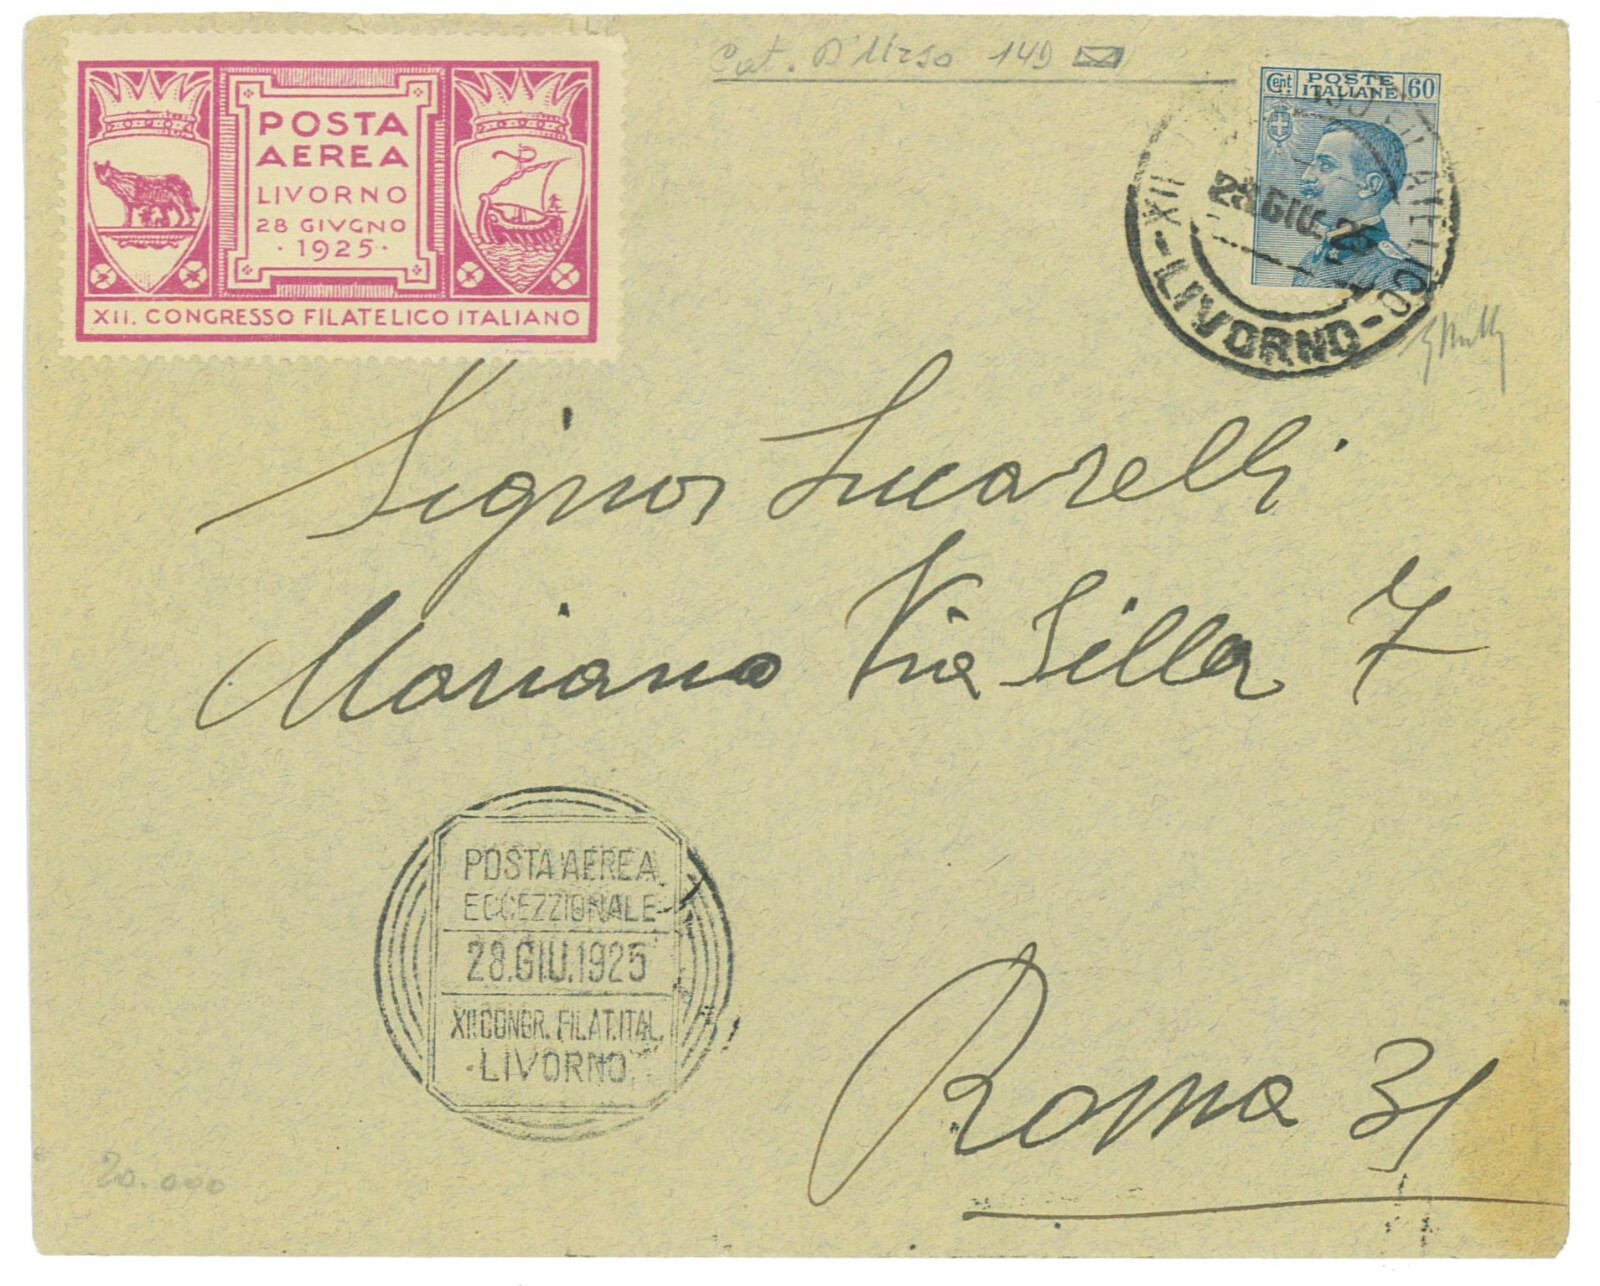 Cat. D'Urso 149
POSTA
AEREA
LIVORNO
28 GIVGNO
· 1925 ·
XII. CONGRESSO FILATELICO ITALIANO
Cent. POSTE ITALIANE 60
XII FILATELICO
28.GIU.25
-LIVORNO-
Signor Lucarelli
Mariano Via Silla 7
POSTA AEREA
ECCEZZIONALE
28.GIU.1925
XII CONGR. FILAT. ITAL.
·LIVORNO
Roma 31
20.000